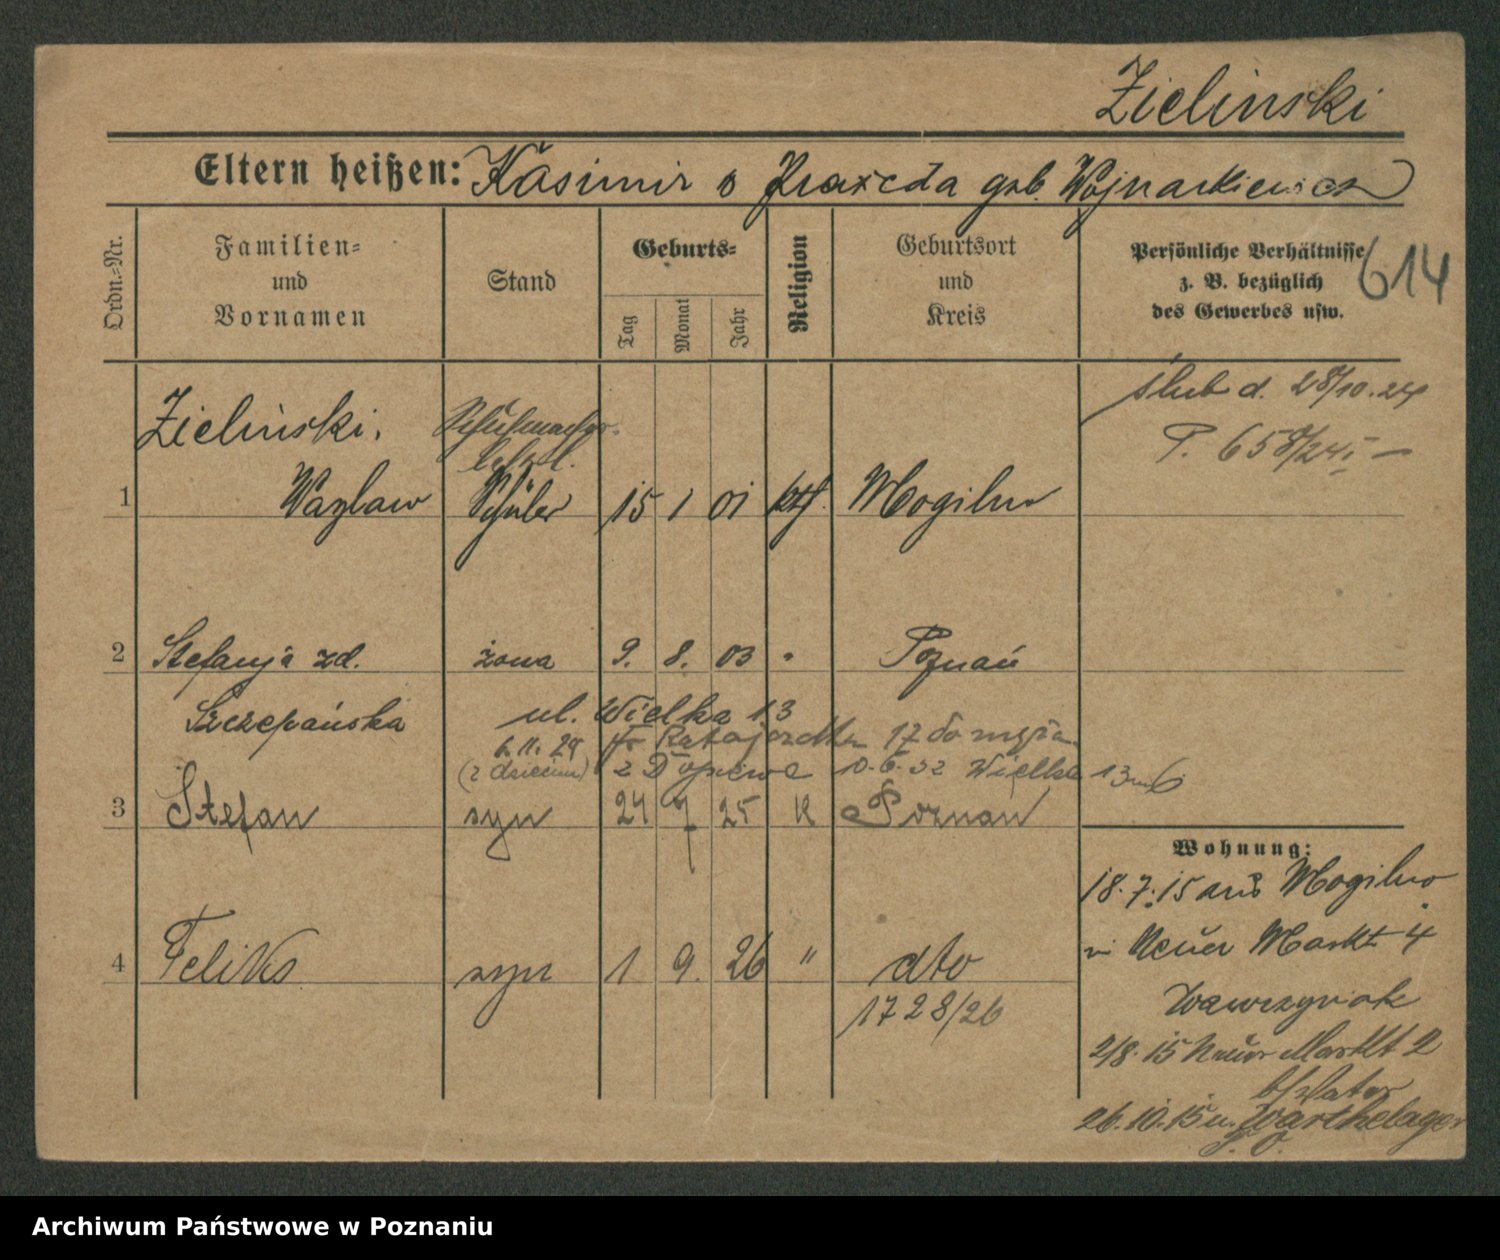 Zielinski
Eltern heißen: Kasimir u Praxeda geb. Wojnarkiewicz
Ordn.-Nr.
Familien- und Vornamen
Stand
Geburts-
Tag
Monat
Jahr
Religion
Geburtsort und Kreis
Persönliche Verhältnisse z. B. bezüglich des Gewerbes usw.
614
Zielinski.
ślub d. 28/10.24
P. 658/24
1 Wazlaw Schüler 15 1 01 kth. Mogilno
2 Stefanja zd. żona 9. 8. 03 " Poznań
Szczepańska
ul. Wielka 13
6.11.29 Ratajczaka 17
(z dziećmi) z Dopiewa 10.6.32 Wielka 13 m 6
3 Stefan syn 24 7 25 K Poznań
4 Feliks syn 1 9. 26 " dto
1728/26
Wohnung:
18.7.15 aus Mogilno
in Neuer Markt 4
Wawrzyniak
2/8.15 Neuer Markt 2
b/Vater
26.10.15 n. Warthelager